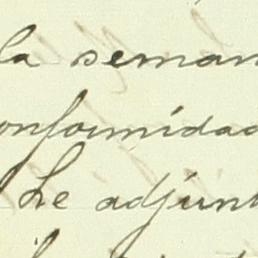 la seman
onformidad
Le adjunt